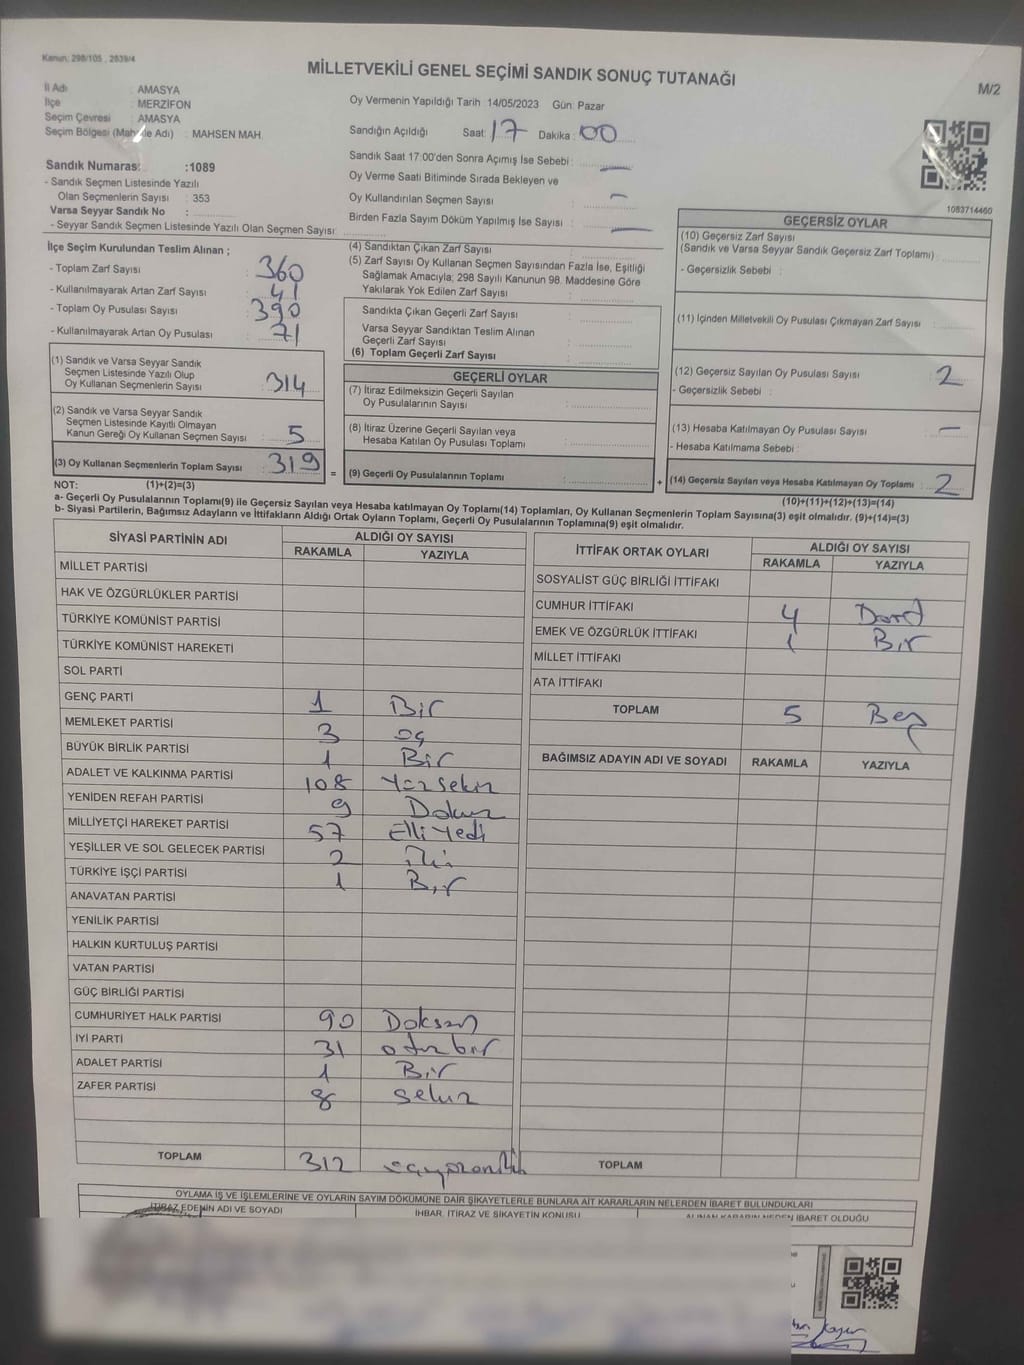 Kanun, 298/105 , 2839/4
MİLLETVEKİLİ GENEL SEÇİMİ SANDIK SONUÇ TUTANAĞI
M/2
İl Adı : AMASYA
İlçe : MERZİFON
Seçim Çevresi : AMASYA
Seçim Bölgesi (Mahalle Adı) : MAHSEN MAH.
Sandık Numarası :1089
- Sandık Seçmen Listesinde Yazılı
Olan Seçmenlerin Sayısı : 353
Varsa Seyyar Sandık No :
- Seyyar Sandık Seçmen Listesinde Yazılı Olan Seçmen Sayısı:
Oy Vermenin Yapıldığı Tarih 14/05/2023 Gün: Pazar
Sandığın Açıldığı Saat: 17 Dakika : 00
Sandık Saat 17:00'den Sonra Açımış İse Sebebi : —
Oy Verme Saati Bitiminde Sırada Bekleyen ve
Oy Kullandırılan Seçmen Sayısı : —
Birden Fazla Sayım Döküm Yapılmış İse Sayısı : —
1083714460
İlçe Seçim Kurulundan Teslim Alınan ;
- Toplam Zarf Sayısı : 360
- Kullanılmayarak Artan Zarf Sayısı : 41
- Toplam Oy Pusulası Sayısı : 390
- Kullanılmayarak Artan Oy Pusulası : 71
(1) Sandık ve Varsa Seyyar Sandık
Seçmen Listesinde Yazılı Olup
Oy Kullanan Seçmenlerin Sayısı : 314
(2) Sandık ve Varsa Seyyar Sandık
Seçmen Listesinde Kayıtlı Olmayan
Kanun Gereği Oy Kullanan Seçmen Sayısı : 5
(3) Oy Kullanan Seçmenlerin Toplam Sayısı : 319 =
(4) Sandıktan Çıkan Zarf Sayısı :
(5) Zarf Sayısı Oy Kullanan Seçmen Sayısından Fazla İse, Eşitliği
Sağlamak Amacıyla; 298 Sayılı Kanunun 98. Maddesine Göre
Yakılarak Yok Edilen Zarf Sayısı :
Sandıkta Çıkan Geçerli Zarf Sayısı :
Varsa Seyyar Sandıktan Teslim Alınan
Geçerli Zarf Sayısı :
(6) Toplam Geçerli Zarf Sayısı :
GEÇERLİ OYLAR
(7) İtiraz Edilmeksizin Geçerli Sayılan
Oy Pusulalarının Sayısı :
(8) İtiraz Üzerine Geçerli Sayılan veya
Hesaba Katılan Oy Pusulası Toplamı :
(9) Geçerli Oy Pusulalarının Toplamı : +
GEÇERSİZ OYLAR
(10) Geçersiz Zarf Sayısı
(Sandık ve Varsa Seyyar Sandık Geçersiz Zarf Toplamı) :
- Geçersizlik Sebebi :
(11) İçinden Milletvekili Oy Pusulası Çıkmayan Zarf Sayısı :
(12) Geçersiz Sayılan Oy Pusulası Sayısı : 2
- Geçersizlik Sebebi :
(13) Hesaba Katılmayan Oy Pusulası Sayısı : —
- Hesaba Katılmama Sebebi :
(14) Geçersiz Sayılan veya Hesaba Katılmayan Oy Toplamı : 2
NOT: (1)+(2)=(3) (10)+(11)+(12)+(13)=(14)
a- Geçerli Oy Pusulalarının Toplamı(9) ile Geçersiz Sayılan veya Hesaba katılmayan Oy Toplamı(14) Toplamları, Oy Kullanan Seçmenlerin Toplam Sayısına(3) eşit olmalıdır. (9)+(14)=(3)
b- Siyasi Partilerin, Bağımsız Adayların ve İttifakların Aldığı Ortak Oyların Toplamı, Geçerli Oy Pusulalarının Toplamına(9) eşit olmalıdır.
SİYASİ PARTİNİN ADI ALDIĞI OY SAYISI
RAKAMLA YAZIYLA
MİLLET PARTİSİ
HAK VE ÖZGÜRLÜKLER PARTİSİ
TÜRKİYE KOMÜNİST PARTİSİ
TÜRKİYE KOMÜNİST HAREKETİ
SOL PARTİ
GENÇ PARTİ 1 Bir
MEMLEKET PARTİSİ 3 üç
BÜYÜK BİRLİK PARTİSİ 1 Bir
ADALET VE KALKINMA PARTİSİ 108 Yüzsekiz
YENİDEN REFAH PARTİSİ 9 Dokuz
MİLLİYETÇİ HAREKET PARTİSİ 57 Elli Yedi
YEŞİLLER VE SOL GELECEK PARTİSİ 2 İki
TÜRKİYE İŞÇİ PARTİSİ 1 Bir
ANAVATAN PARTİSİ
YENİLİK PARTİSİ
HALKIN KURTULUŞ PARTİSİ
VATAN PARTİSİ
GÜÇ BİRLİĞİ PARTİSİ
CUMHURİYET HALK PARTİSİ 90 Doksan
İYİ PARTİ 31 otuz bir
ADALET PARTİSİ 1 Bir
ZAFER PARTİSİ 8 Sekiz
TOPLAM 312
İTTİFAK ORTAK OYLARI ALDIĞI OY SAYISI
RAKAMLA YAZIYLA
SOSYALİST GÜÇ BİRLİĞİ İTTİFAKI
CUMHUR İTTİFAKI 4 Dört
EMEK VE ÖZGÜRLÜK İTTİFAKI 1 Bir
MİLLET İTTİFAKI
ATA İTTİFAKI
TOPLAM 5 Beş
BAĞIMSIZ ADAYIN ADI VE SOYADI RAKAMLA YAZIYLA
TOPLAM
OYLAMA İŞ VE İŞLEMLERİNE VE OYLARIN SAYIM DÖKÜMÜNE DAİR ŞİKAYETLERLE BUNLARA AİT KARARLARIN NELERDEN İBARET BULUNDUKLARI
İTİRAZ EDENİN ADI VE SOYADI İHBAR, İTİRAZ VE ŞİKAYETİN KONUSU ALINAN KARARIN NEDEN İBARET OLDUĞU